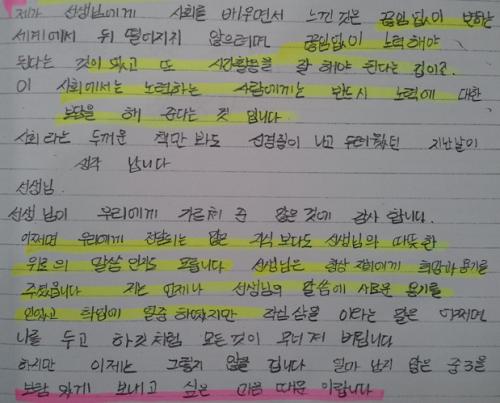 제가 선생님에게 사회를 배우면서 느낀것은 끊임없이 변하는
세계에서 뒤 떨어지지 않으려면 끊임없이 노력해야
된다는 것이 였고 또 시간활용을 잘 해야 된다는 점이죠.
이 사회에서는 노력하는 사람에게는 반드시 노력에 대한
보답을 해 준다는 것 입니다
사회라는 두꺼운 책만 봐도 선경험이 나고 두려웠던 지난날이
생각 납니다
선생님.
선생님이 우리에게 가르쳐 준 많은 것에 감사 합니다.
어쩌면 우리에게 전달되는 많은 지식 보다도 선생님의 따뜻한
위로의 말씀 인지도 모릅니다 선생님은 항상 저희에게 희망과 용기를
주셨습니다 저는 언제나 선생님의 말씀에 새로운 용기를
얻었고 학업에 열중 하였지만 작심삼일 이라는 말은 어쩌면
나를 두고 하는것처럼 모든것이 무너져 버립니다
하지만 이제는 그렇지 않을 겁니다 얼마 남지 않은 중3을
보람 있게 보내고 싶은 마음 때문 이랍니다